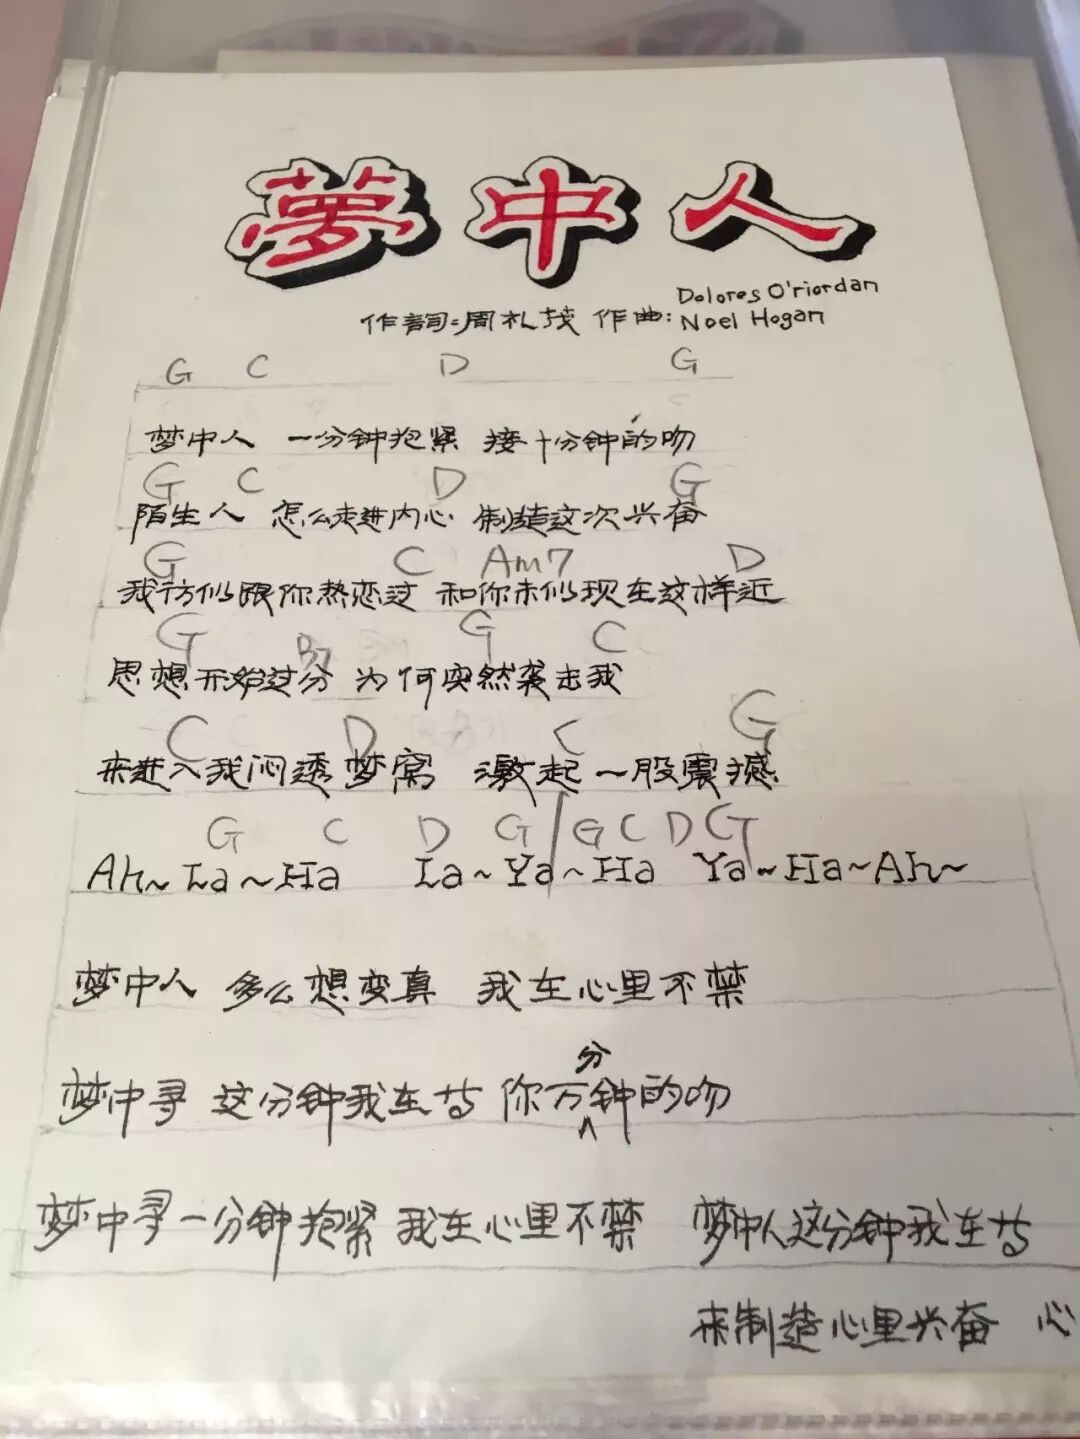 夢中人
作詞:周礼茂 作曲: Dolores O'riordan
Noel Hogan
G C D G
梦中人 一分钟抱紧 接十分钟的吻
G C D G
陌生人 怎么走进内心 制造这次兴奋
G C Am7 D
我彷似跟你热恋过 和你未似现在这样近
G B7 G C
思想开始过分 为何突然袭击我
C D C G
来进入我闷透梦窝 激起一股震撼
G C D G G C D G
Ah~La~Ha La~Ya~Ha Ya~Ha~Ah~
梦中人 多么想变真 我在心里不禁
分
梦中寻 这分钟我在等 你万钟的吻
梦中寻一分钟抱紧 我在心里不禁 梦中人这分钟我在等
来制造心里兴奋 心